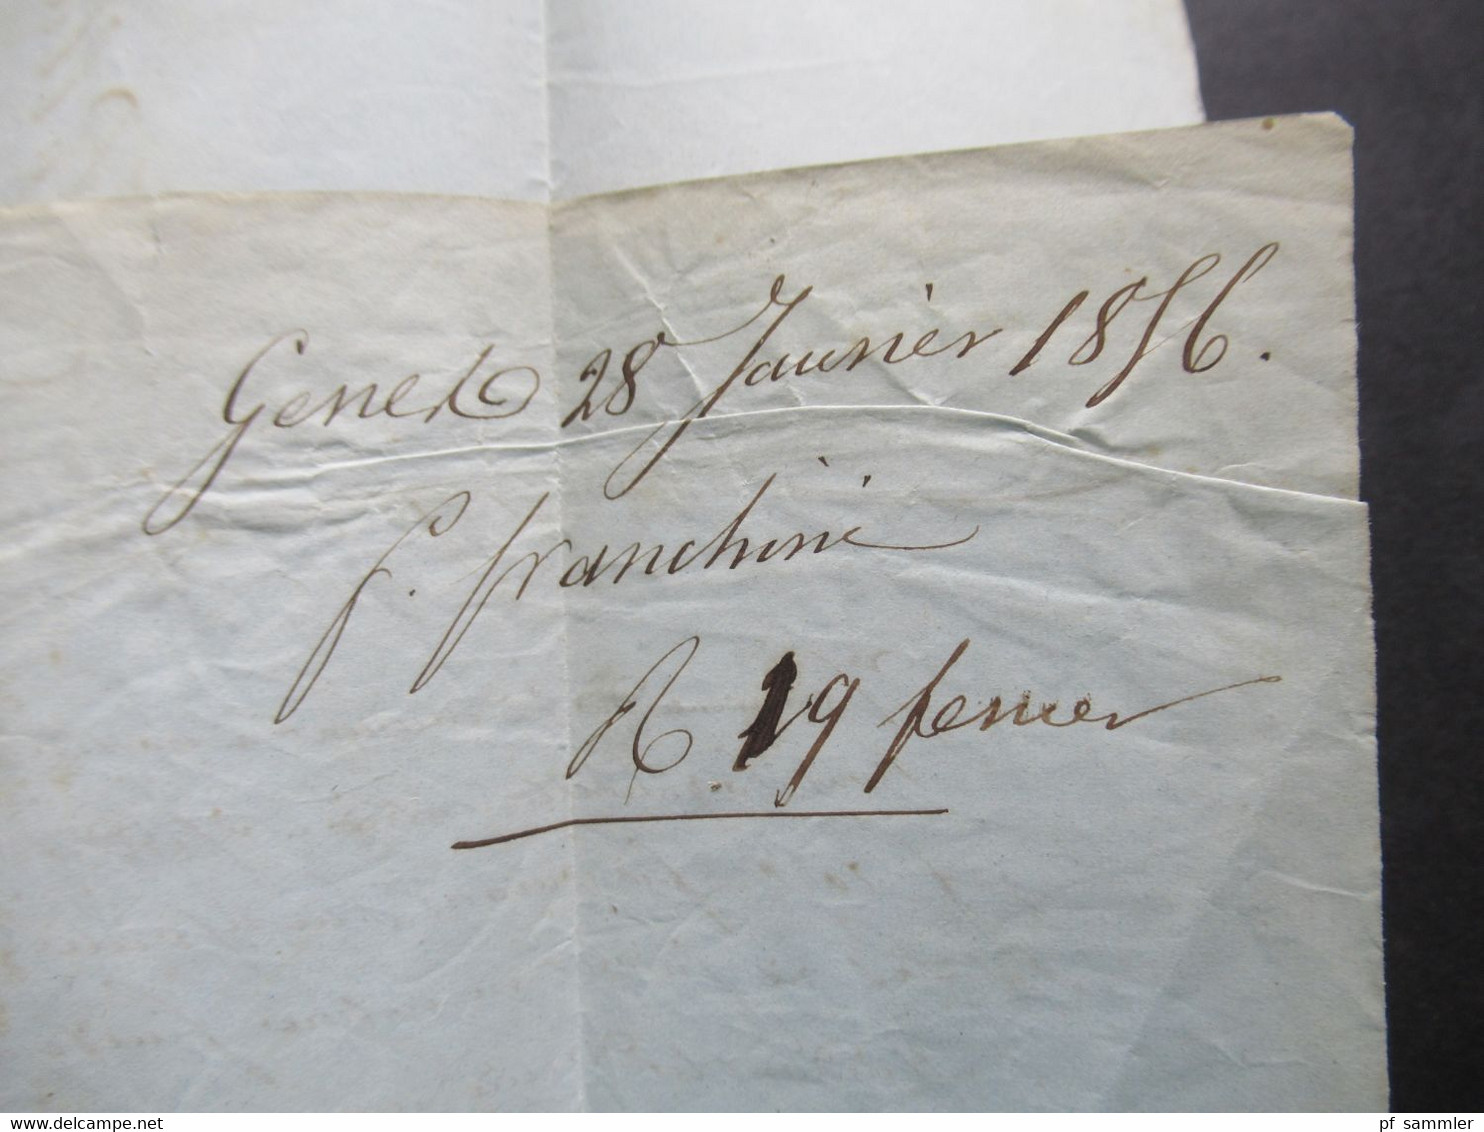 28 Janvier 1856.
f. franchini
R. 19 fevrier
delcampe.net
pf_sammler